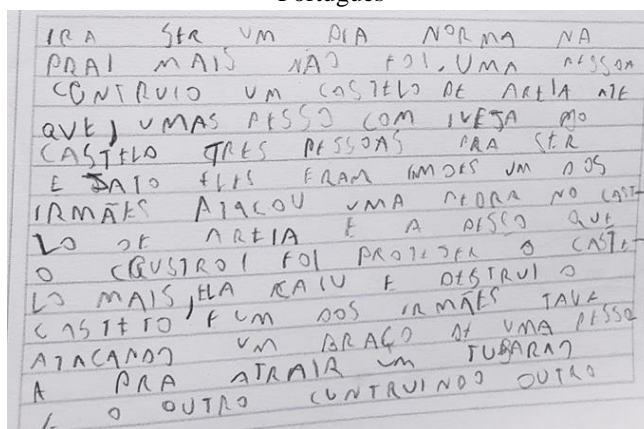 Português
IRA SER UM DIA NORMA NA
PRAI MAIS NÃO FOI, UMA PESSOA
CONTRUIO UM CASTELO DE AREIA ATE
QUE, UMAS PESSO COM IVEJA DO
CASTELO TRES PESSOAS PRA SER
E JATO ELES ERAM IMOES UM DOS
IRMÃES ATACOU UMA PEDRA NO CAST-
LO DE AREIA E A PESSO QUE
O CQUSTROI FOI PROTEJER O CASTE-
LO MAIS, ELA CAIU E DESTRUI O
CASTETO E UM DOS IRMÃES TAVE
ATACANDO UM BRAÇO DE UMA PESSO
A PRA ATRAIR UM TUBARAO
E O OUTRO CUNTRUINDO OUTRO